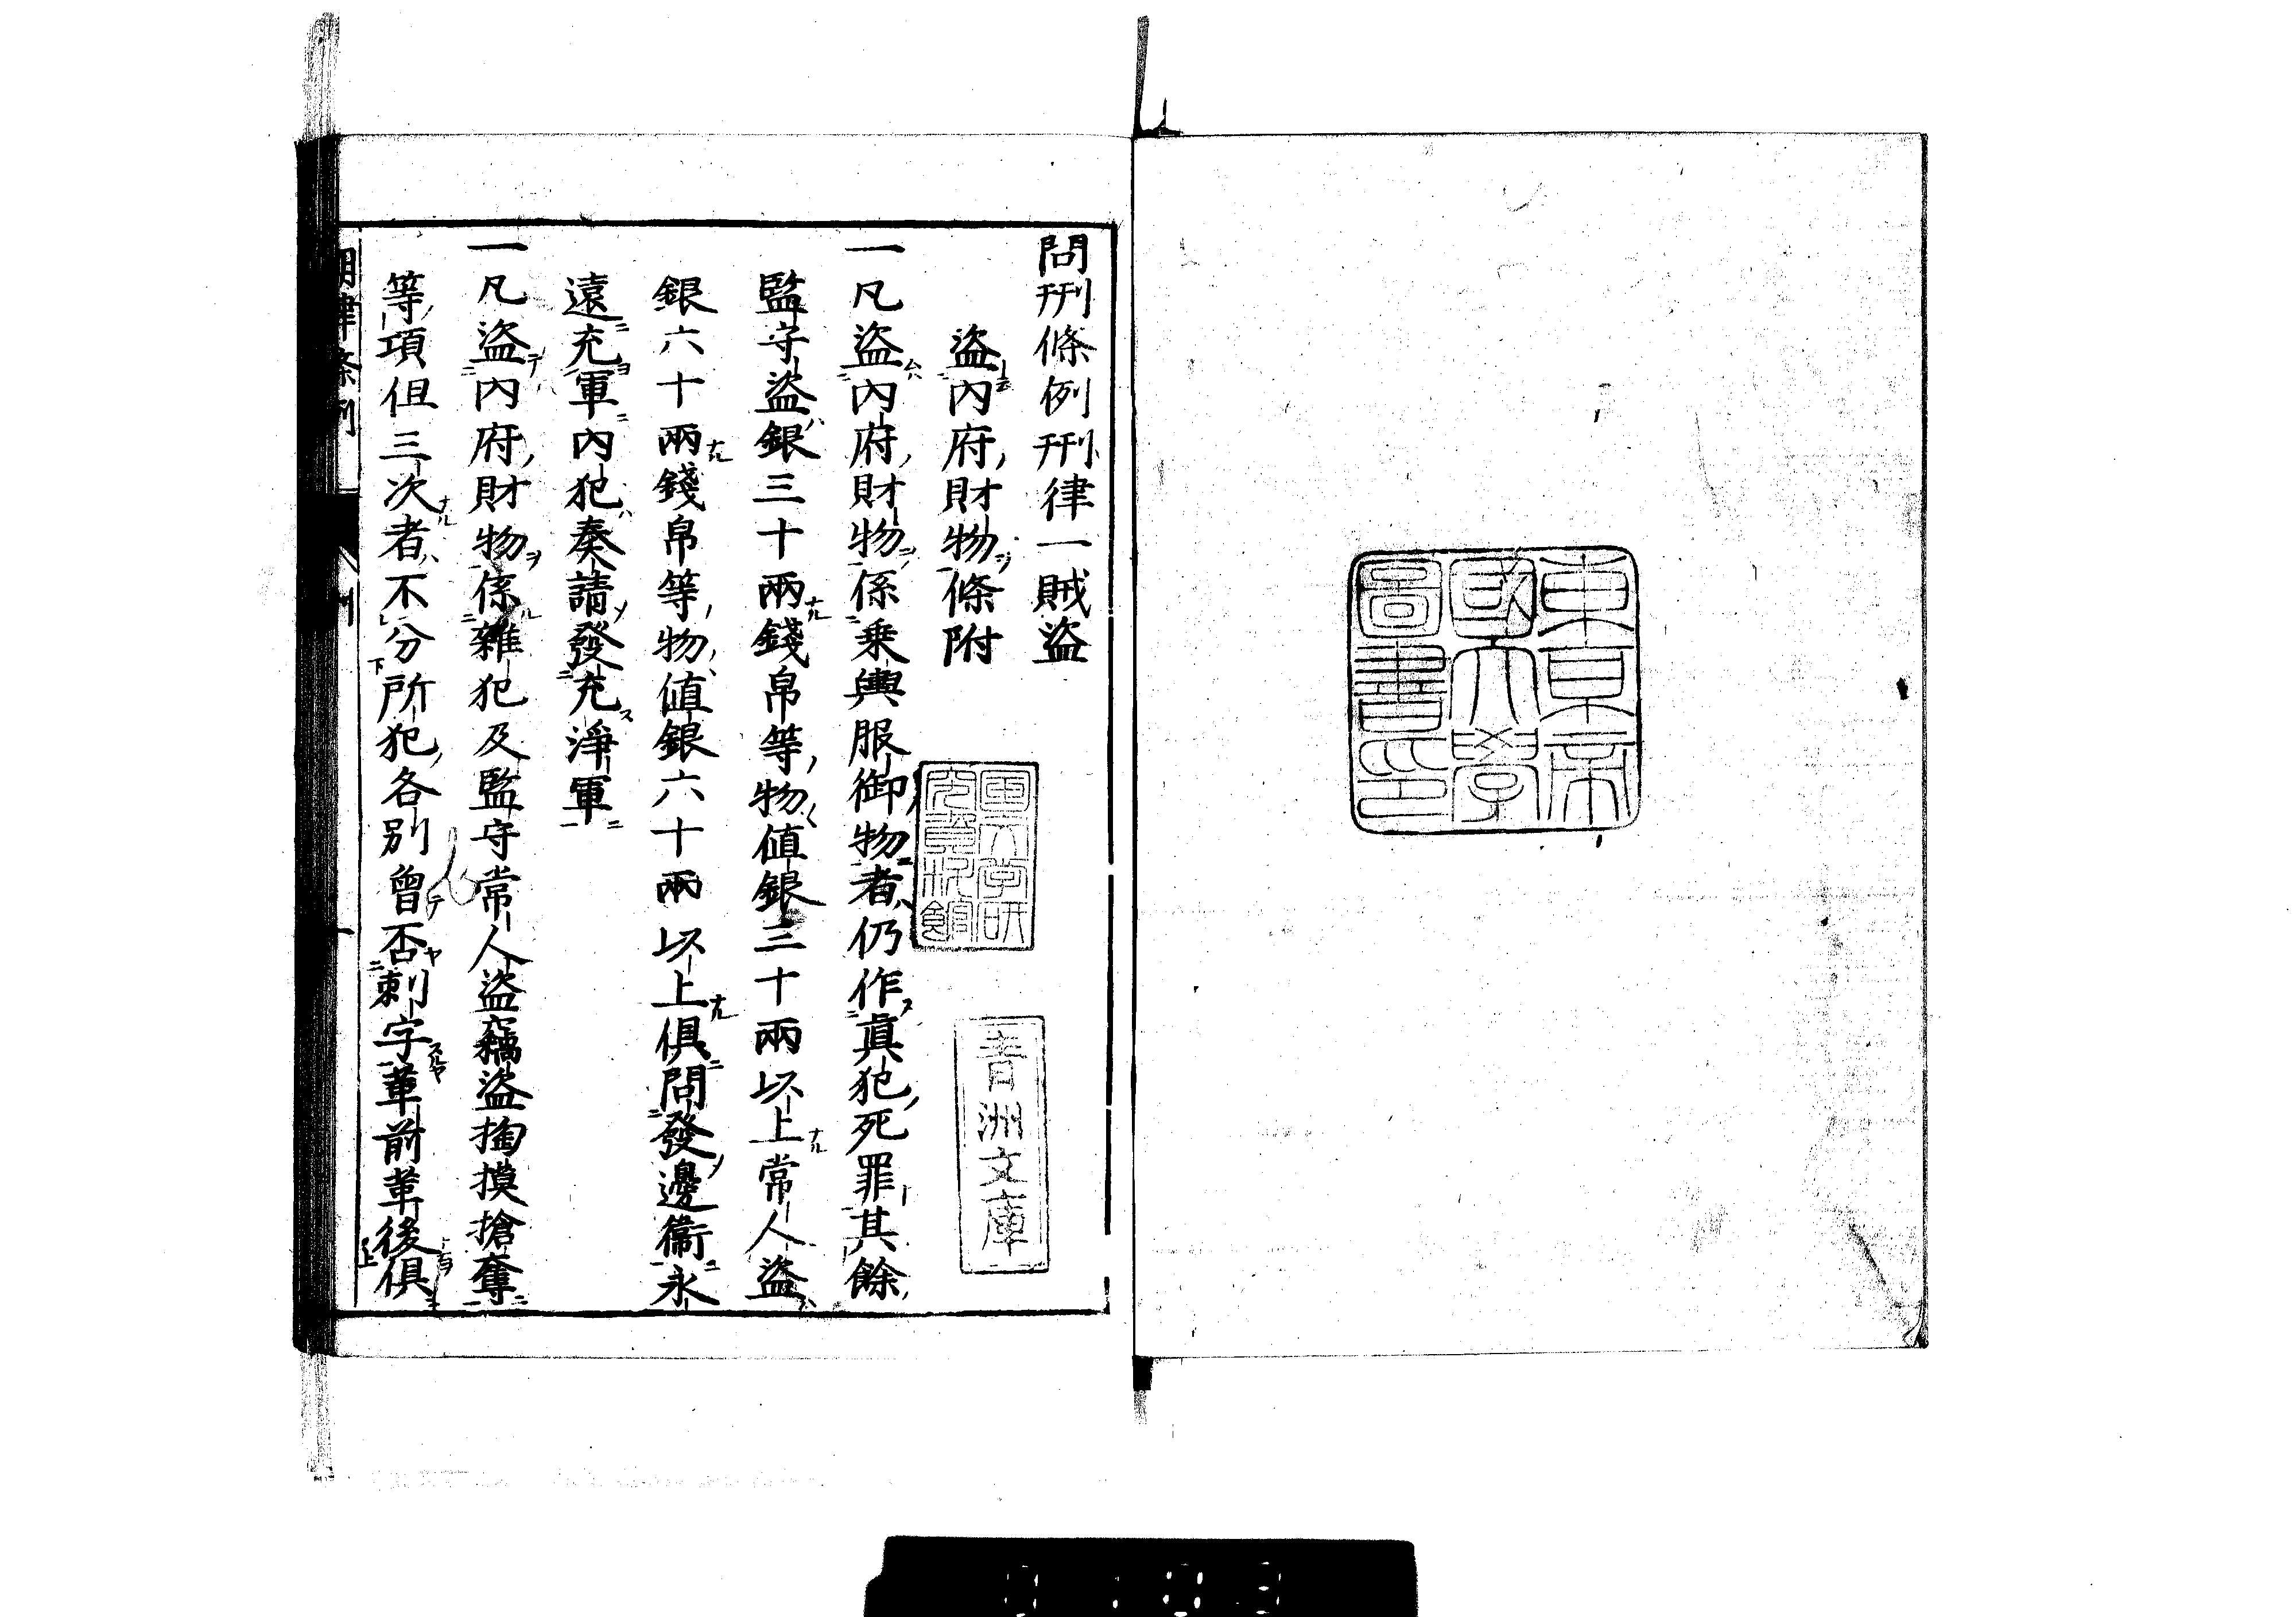 東京帝
國大學
圖書印
問刑條例刑律一賊盜
盜內府財物條附
一凡盜內府財物係乘輿服御物者仍作眞犯死罪其餘
監守盜銀三十兩錢帛等物値銀三十兩以上常人盜
銀六十兩錢帛等物値銀六十兩以上俱問發邊衞永
遠充軍內犯奏請發充淨軍
一凡盜內府財物係雜犯及監守常人盜竊盜掏摸搶奪
等項但三次者不分所犯各別曾否刺字革前革後俱
青洲文庫